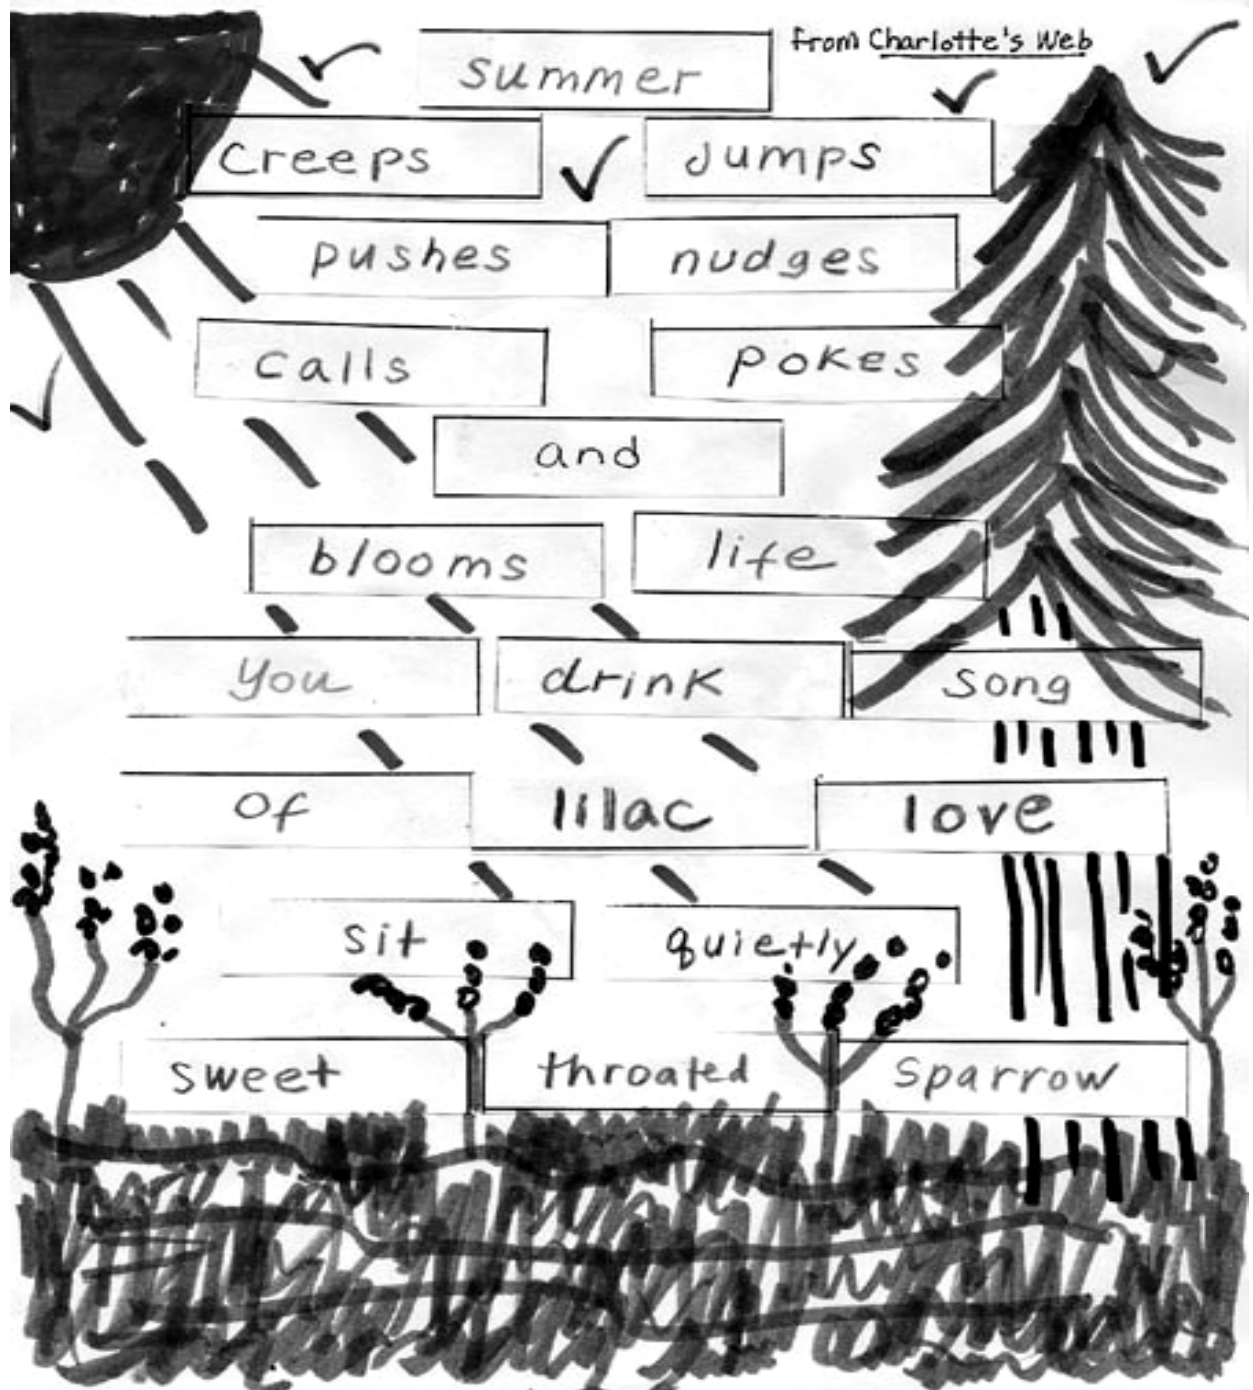 from Charlotte's Web
summer
creeps jumps
pushes nudges
calls pokes
and
blooms life
you drink song
of lilac love
sit quietly
sweet throated sparrow